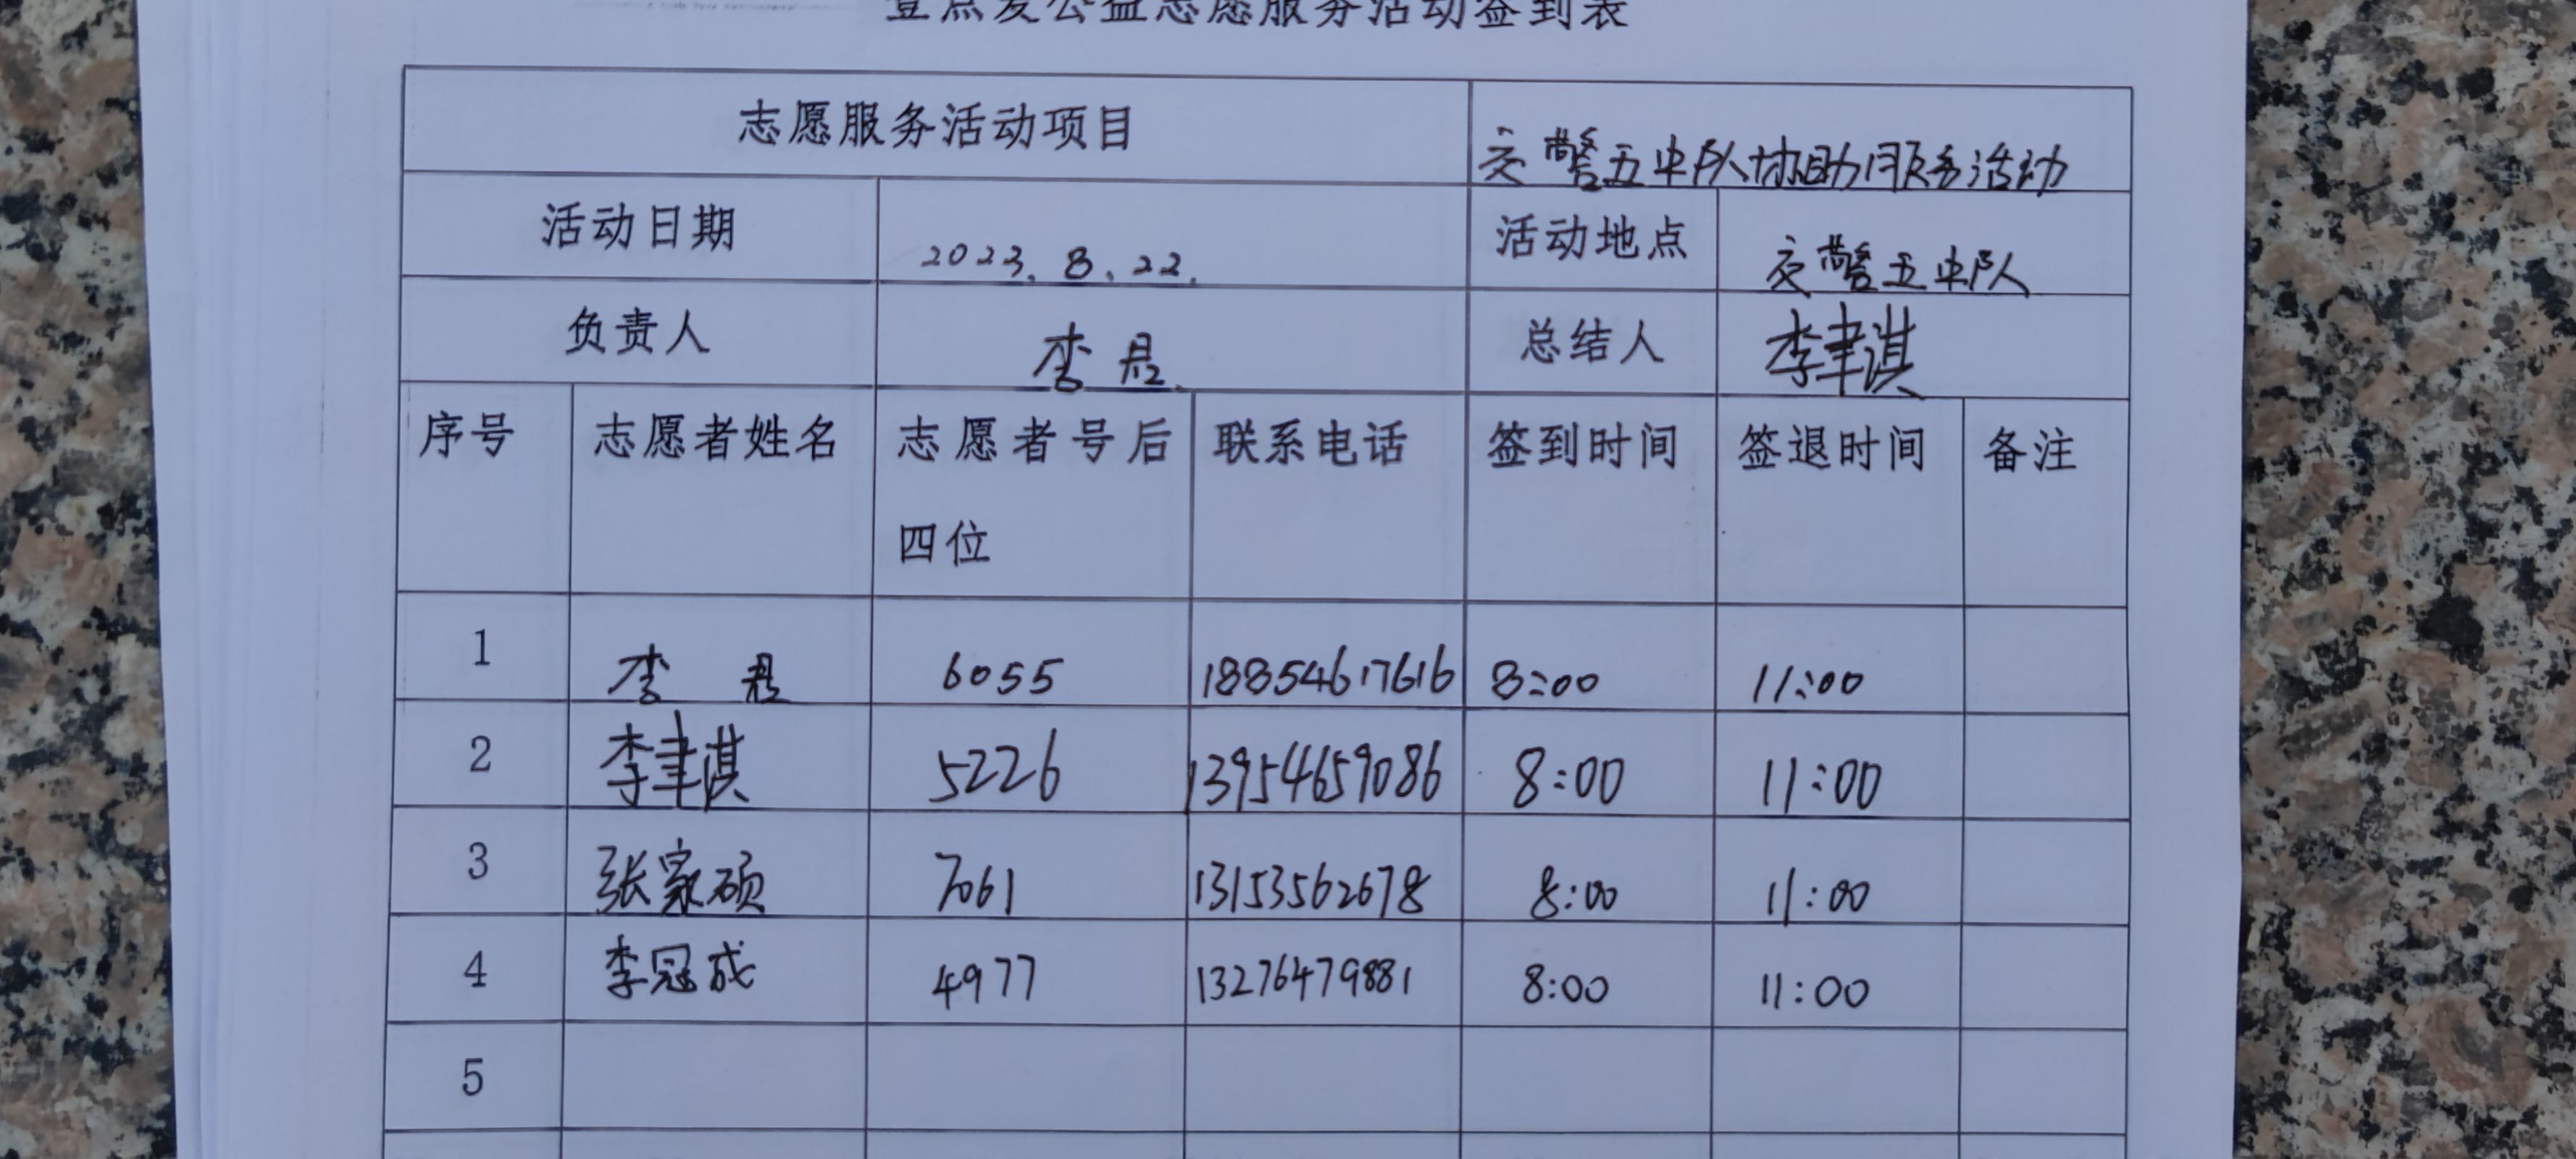 壹点爱公益志愿服务活动签到表
志愿服务活动项目 交警五中队协助服务活动
活动日期 2023.8.22. 活动地点 交警五中队
负责人 李君. 总结人 李聿淇
序号 志愿者姓名 志愿者号后 联系电话 签到时间 签退时间 备注
四位
1 李君 6055 18854617616 8:00 11:00
2 李聿淇 5226 13954659086 8:00 11:00
3 张家硕 7061 13153562678 8:00 11:00
4 李冠成 4977 13276479881 8:00 11:00
5